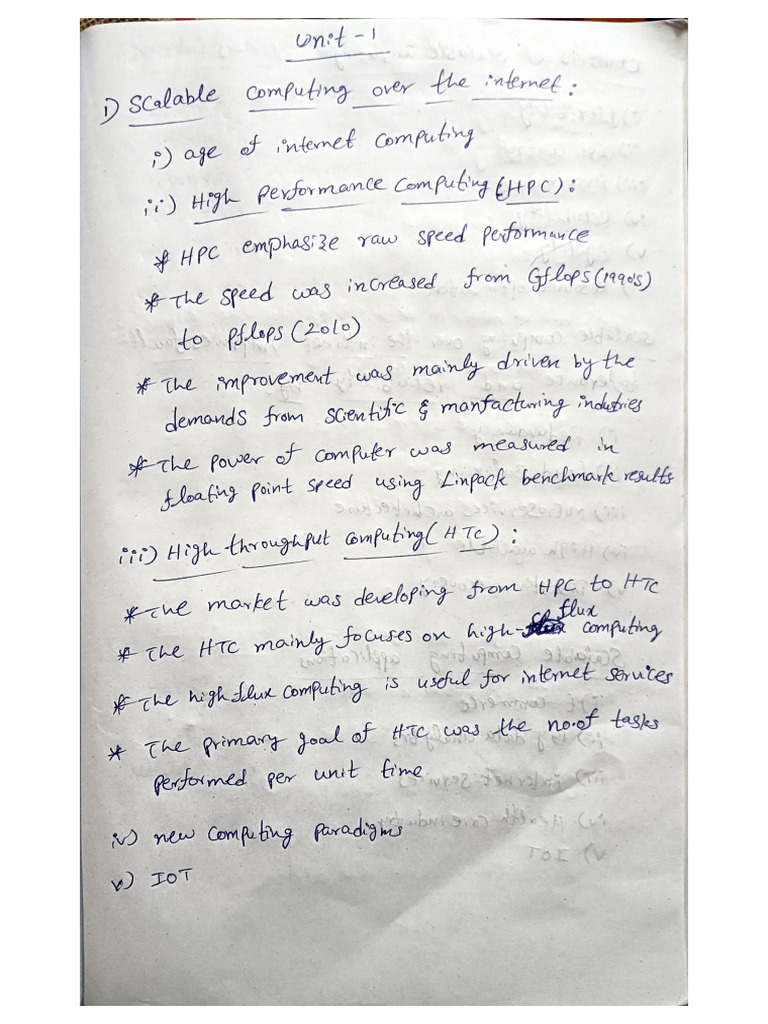 Unit - 1
1) Scalable computing over the internet:
i) age of internet computing
ii) High performance computing (HPC):
* HPC emphasize raw speed performance
* The speed was increased from Gflops (1990's)
to pflops (2010)
* The improvement was mainly driven by the
demands from scientific & manfacturing industries
* The power of computer was measured in
floating point speed using Linpack benchmark results
iii) High-throughput computing (HTC):
* The market was developing from HPC to HTC
* The HTC mainly focuses on high-flux computing
* The high flux computing is useful for internet services
* The primary goal of HTC was the no.of tasks
performed per unit time
iv) new computing paradigms
v) IOT